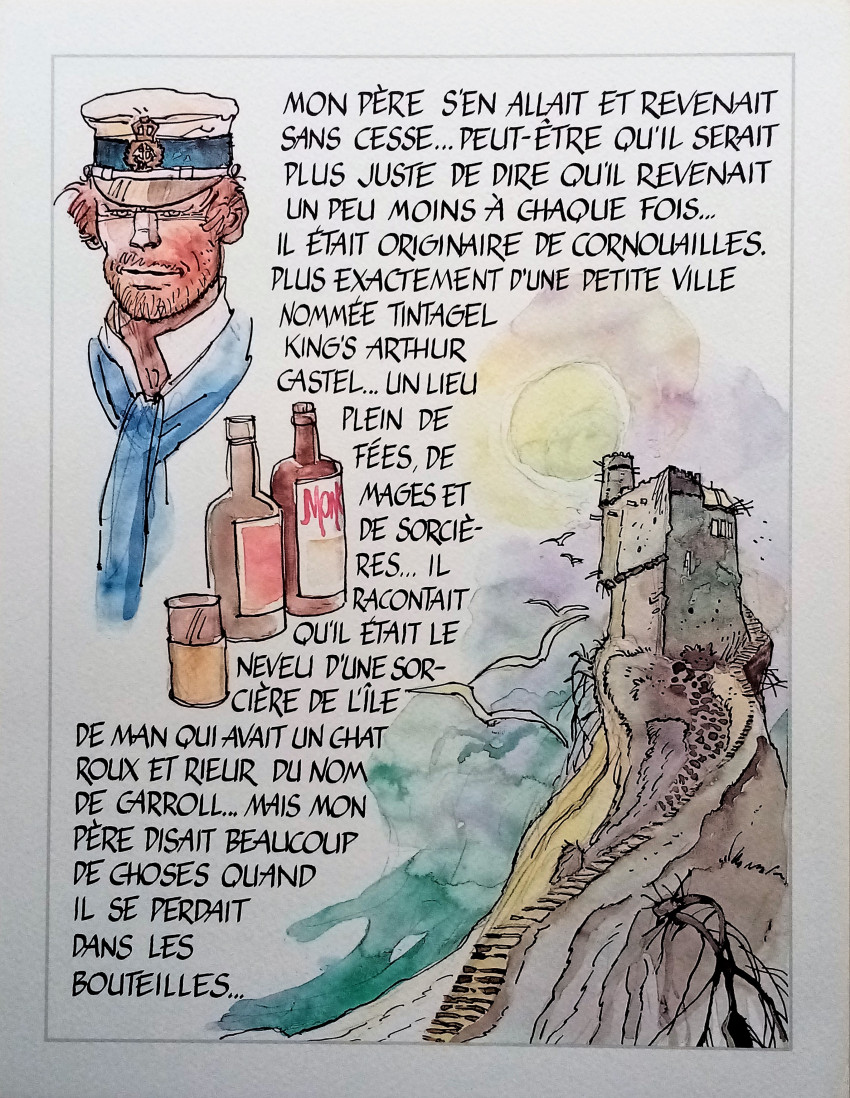 MON PÈRE S'EN ALLAIT ET REVENAIT
SANS CESSE... PEUT-ÊTRE QU'IL SERAIT
PLUS JUSTE DE DIRE QU'IL REVENAIT
UN PEU MOINS À CHAQUE FOIS...
IL ÉTAIT ORIGINAIRE DE CORNOUAILLES.
PLUS EXACTEMENT D'UNE PETITE VILLE
NOMMÉE TINTAGEL
KING'S ARTHUR
CASTEL... UN LIEU
PLEIN DE
FÉES, DE
MAGES ET
DE SORCIÈ-
RES... IL
RACONTAIT
QU'IL ÉTAIT LE
NEVEU D'UNE SOR-
CIÈRE DE L'ÎLE
DE MAN QUI AVAIT UN CHAT
ROUX ET RIEUR DU NOM
DE CARROLL... MAIS MON
PÈRE DISAIT BEAUCOUP
DE CHOSES QUAND
IL SE PERDAIT
DANS LES
BOUTEILLES...
MON